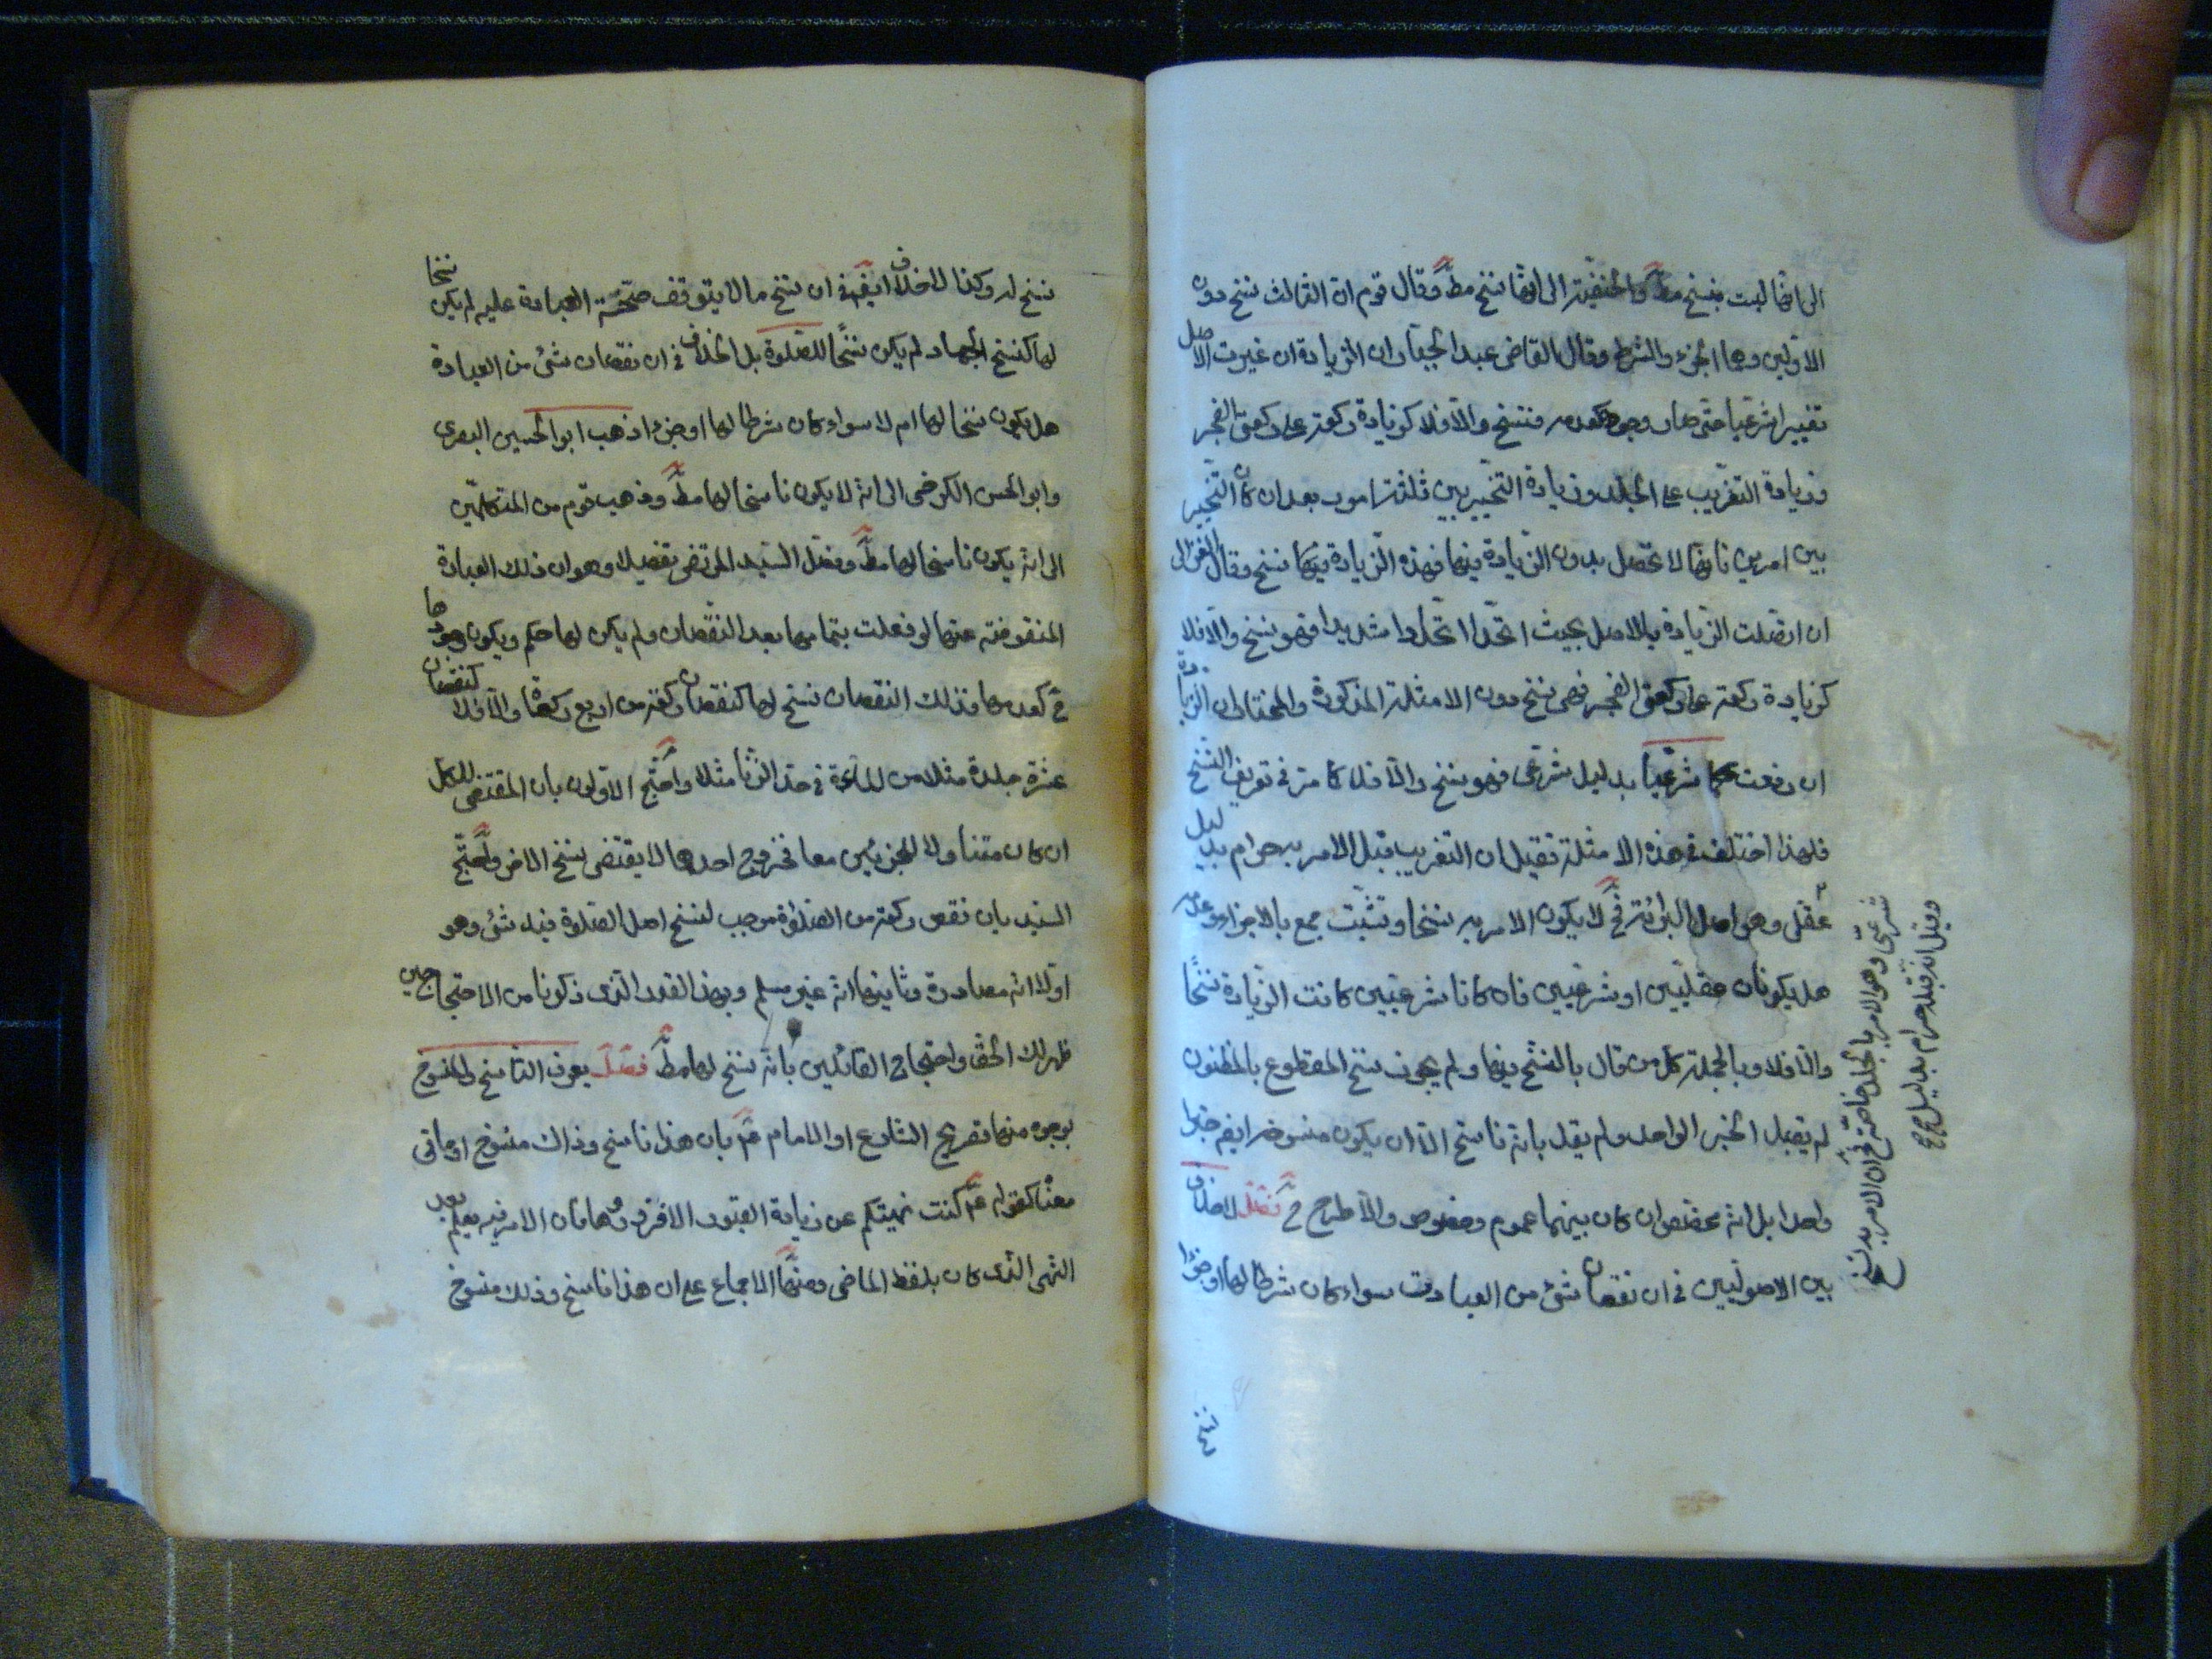 الى انها ليست بنسخ مط والحنفية الى انها نسخ مط وقال قوم ان الثالث نسخ دون
الاولين وهما الجزء والشرط وقال القاضى عبد الجبار ان الزيادة ان غيرت الاصل
تغييرا شرعيا حتى صار وجوده كعدمه فنسخ والا فلا كزيادة ركعة على ركعتى الفجر
وزيادة التغريب على الجلد وزيادة التخيير بين ثلثة امور بعد ان كان التخيير
بين امرين فانها لا تحصل بدون الزيادة فيها فهذه الزيادة فيها نسخ وقال الغزالى
ان اتصلت الزيادة بالاصل بحيث اتحدا اتحادا شديدا فهو نسخ والا فلا
كزيادة ركعة على ركعتى الفجر فهى نسخ دون الامثلة المذكورة والمختار ان الزيادة
ان رفعت حكما شرعيا بدليل شرعى فهو نسخ والا فلا كما مر فى تعريف النسخ
فلهذا اختلف فى هذه الامثلة فقيل ان التغريب قبل الامر به حرام بدليل
عقلى وهو اصل البرائة فح لا يكون الامر به نسخا وتثبت جمع بالاجزاء وعدمه
هل يكونان عقليين او شرعيين فان كانا شرعيين كانت الزيادة نسخا
والا فلا وبالجملة كل من قال بالنسخ فيها ولم يجوز نسخ المقطوع بالمظنون
لم يقبل الخبر الواحد ولم يقل بانه ناسخ الا ان يكون منسوخه ايض خبرا
واحدا بل انه مخصص ان كان بينهما عموم وخصوص والا طرح فح فصل لا خلاف
بين الاصوليين فى ان نقصان شئ من العبادت سواء كان شرطا لها او جزءا
شرعى وهو الامر بالجلد خاصة فح ان الامر به نسخ
وقيل انه قبله حرام بدليل
نسخ له وكذا لا خلاف ايض فى ان نسخ ما لا يتوقف صحة العبادة عليه لم يكن نسخا
لها كنسخ الجهاد لم يكن نسخا للصلوة بل الخلاف فى ان نقصان شئ من العبادة
هل يكون نسخا لها ام لا سواء كان شرطا لها او جزءا ذهب ابو الحسين البصرى
وابو الحسن الكرخى الى انه لا يكون ناسخا لها مط وذهب قوم من المتكلمين
الى انه يكون ناسخا لها مط وفصل السيد المرتضى تفصيلا وهو ان ذلك العبادة
المنقوصة عنها لو فعلت بتمامها بعد النقصان ولم يكن لها حكم ويكون وجودها
كعدمها فذلك النقصان نسخ لها كنقصان ركعة من اربع ركعة والا فلا كنقصان
عشرة جلدة مثلا من المائة فى حد الزنا مثلا واحتج الاولون بان المقتضى للكل
ان كان متناولا للجزئين معا فخروج احدهما لا يقتضى نسخ الاخر واحتج
السيد بان نقص ركعة من الصلوة موجب لنسخ اصل الصلوة فيه شئ وهو
اولا انه مصادرة وثانيها انه غير مسلم وبهذا القدر الذى ذكرنا من الاحتجاجين
ظهر لك الحق واحتجاج القائلين بانه نسخ لها مط فصل يعرف الناسخ والمنسوخ
بوجوه منها تصريح الشارع او الامام عم بان هذا ناسخ وذاك منسوخ او ما فى
معناه كقوله عم كنت نهيتكم عن زيارة القبور الا فزوروها فان الامر فيه يعلم بعد
النهى الذى كان بلفظ الماضى ومنها الاجماع على ان هذا ناسخ وذلك منسوخ